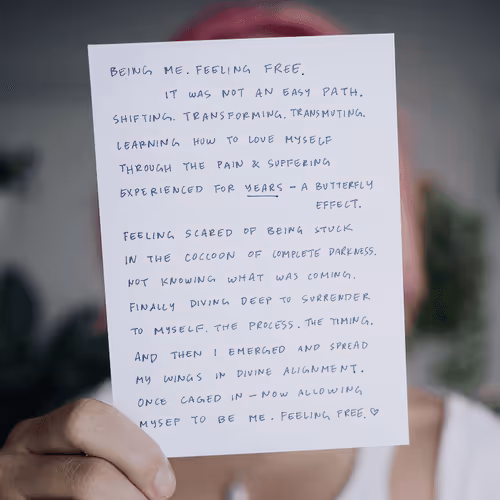 BEING ME. FEELING FREE.
IT WAS NOT AN EASY PATH.
SHIFTING. TRANSFORMING. TRANSMUTING.
LEARNING HOW TO LOVE MYSELF
THROUGH THE PAIN & SUFFERING
EXPERIENCED FOR YEARS – A BUTTERFLY
EFFECT.
FEELING SCARED OF BEING STUCK
IN THE COCCOON OF COMPLETE DARKNESS.
NOT KNOWING WHAT WAS COMING.
FINALLY DIVING DEEP TO SURRENDER
TO MYSELF. THE PROCESS. THE TIMING.
AND THEN I EMERGED AND SPREAD
MY WINGS IN DIVINE ALIGNMENT.
ONCE CAGED IN – NOW ALLOWING
MYSEP TO BE ME. FEELING FREE. ♡